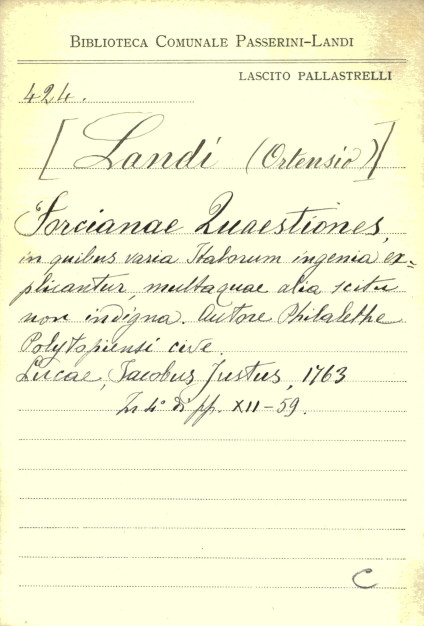 BIBLIOTECA COMUNALE PASSERINI-LANDI
LASCITO PALLASTRELLI
424.
[Landi (Ortensio)]
Forcianae Quaestiones,
in quibus varia Italorum ingenia ex=
plicantur, multaquae alia scitu
non indigna. Autore Philalethe
Polytopiensi cive.
Lucae, Jacobus Justus, 1763
In 4° di pp. XII-59.
C